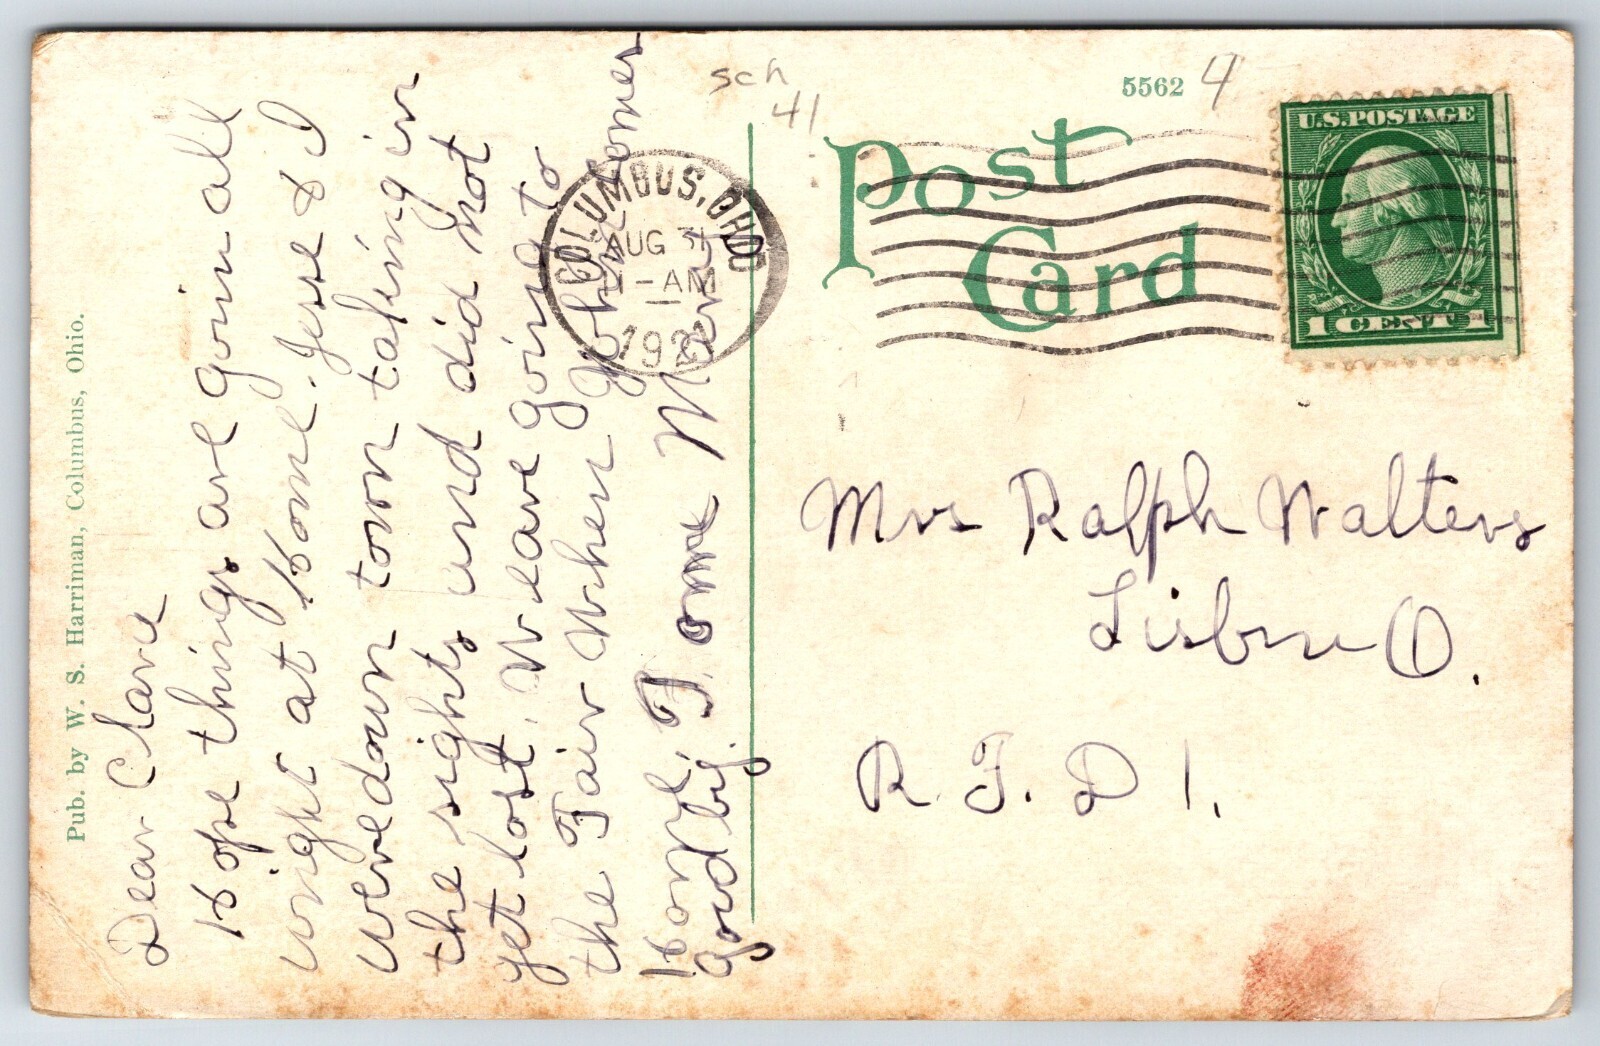 Pub. by W. S. Harriman, Columbus, Ohio.
Dear Clara
Hope things are goin all
wright at Home. Jesse & I
were down town taking in
the sights und did not
yet lost. We are going to
the Fair When John comes
Home, F. ome
good by.
sch
41
5562
4
Post
Card
COLUMBUS, OHIO
AUG 31
1-AM
1921
U.S. POSTAGE
1 CENT 1
Mrs Ralph Walters
Lisbon O.
R. F. D 1.